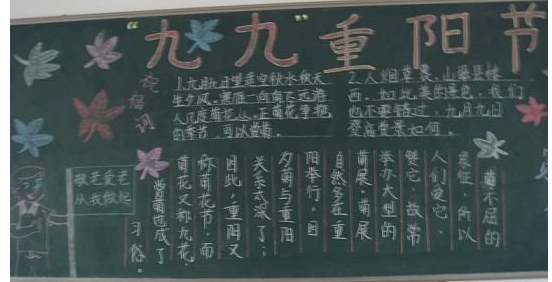 “九九”重阳节
1.九月九日望遥空秋水秋天
生夕风。寒雁一向南飞远游
人几度菊花丛。正菊花争艳
的季节,可以赏菊。
2.人烟
西。如此美的景色,我们
也不要错过,九月九日
登高赏景如何。
敬老爱老
从我做起
菊不屈的
象征,所以
人们爱它、
赞它,故常
举办大型的
菊展,菊展
自然多在重
阳举行,因
夕菊与重阳
关系太深了;
因此,重阳又
称菊花节,而
菊花又称九花。
赏菊也成了
习俗。